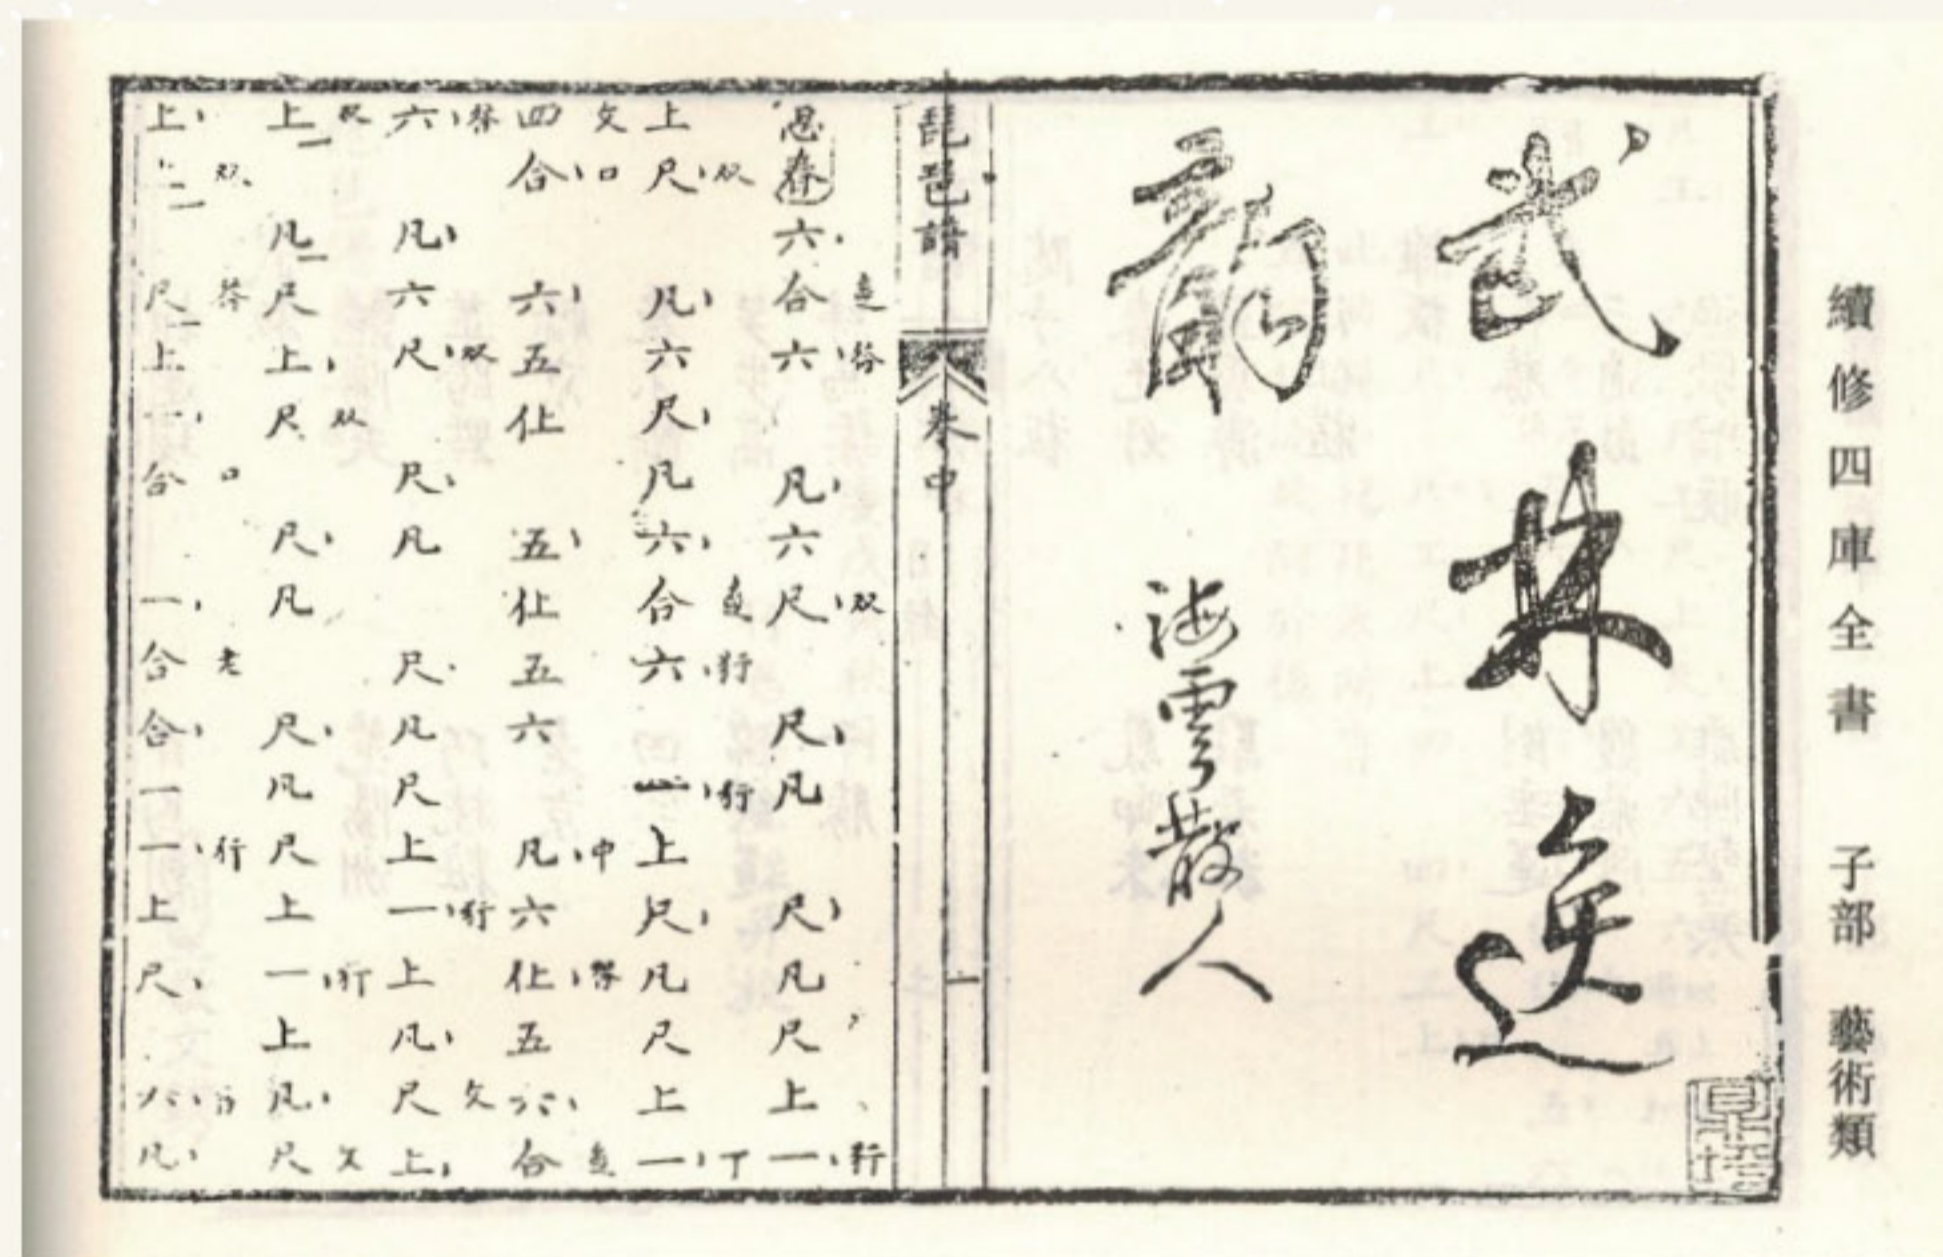 續修四庫全書 子部 藝術類
武林逸
韻
海雲散人
琵琶譜 卷中 一
思春 六合六凡六尺双尺凡尺凡尺上一行
上尺双凡六尺凡六合六行行上尺凡尺上一丁
四合口六五仩五仩五六凡中六仩五六合
六凡六尺双尺凡尺凡尺上一行上凡尺上
上凡尺上尺双尺凡尺凡尺上一行上凡尺
上上双尺上一合口一合合一一行上尺六凡